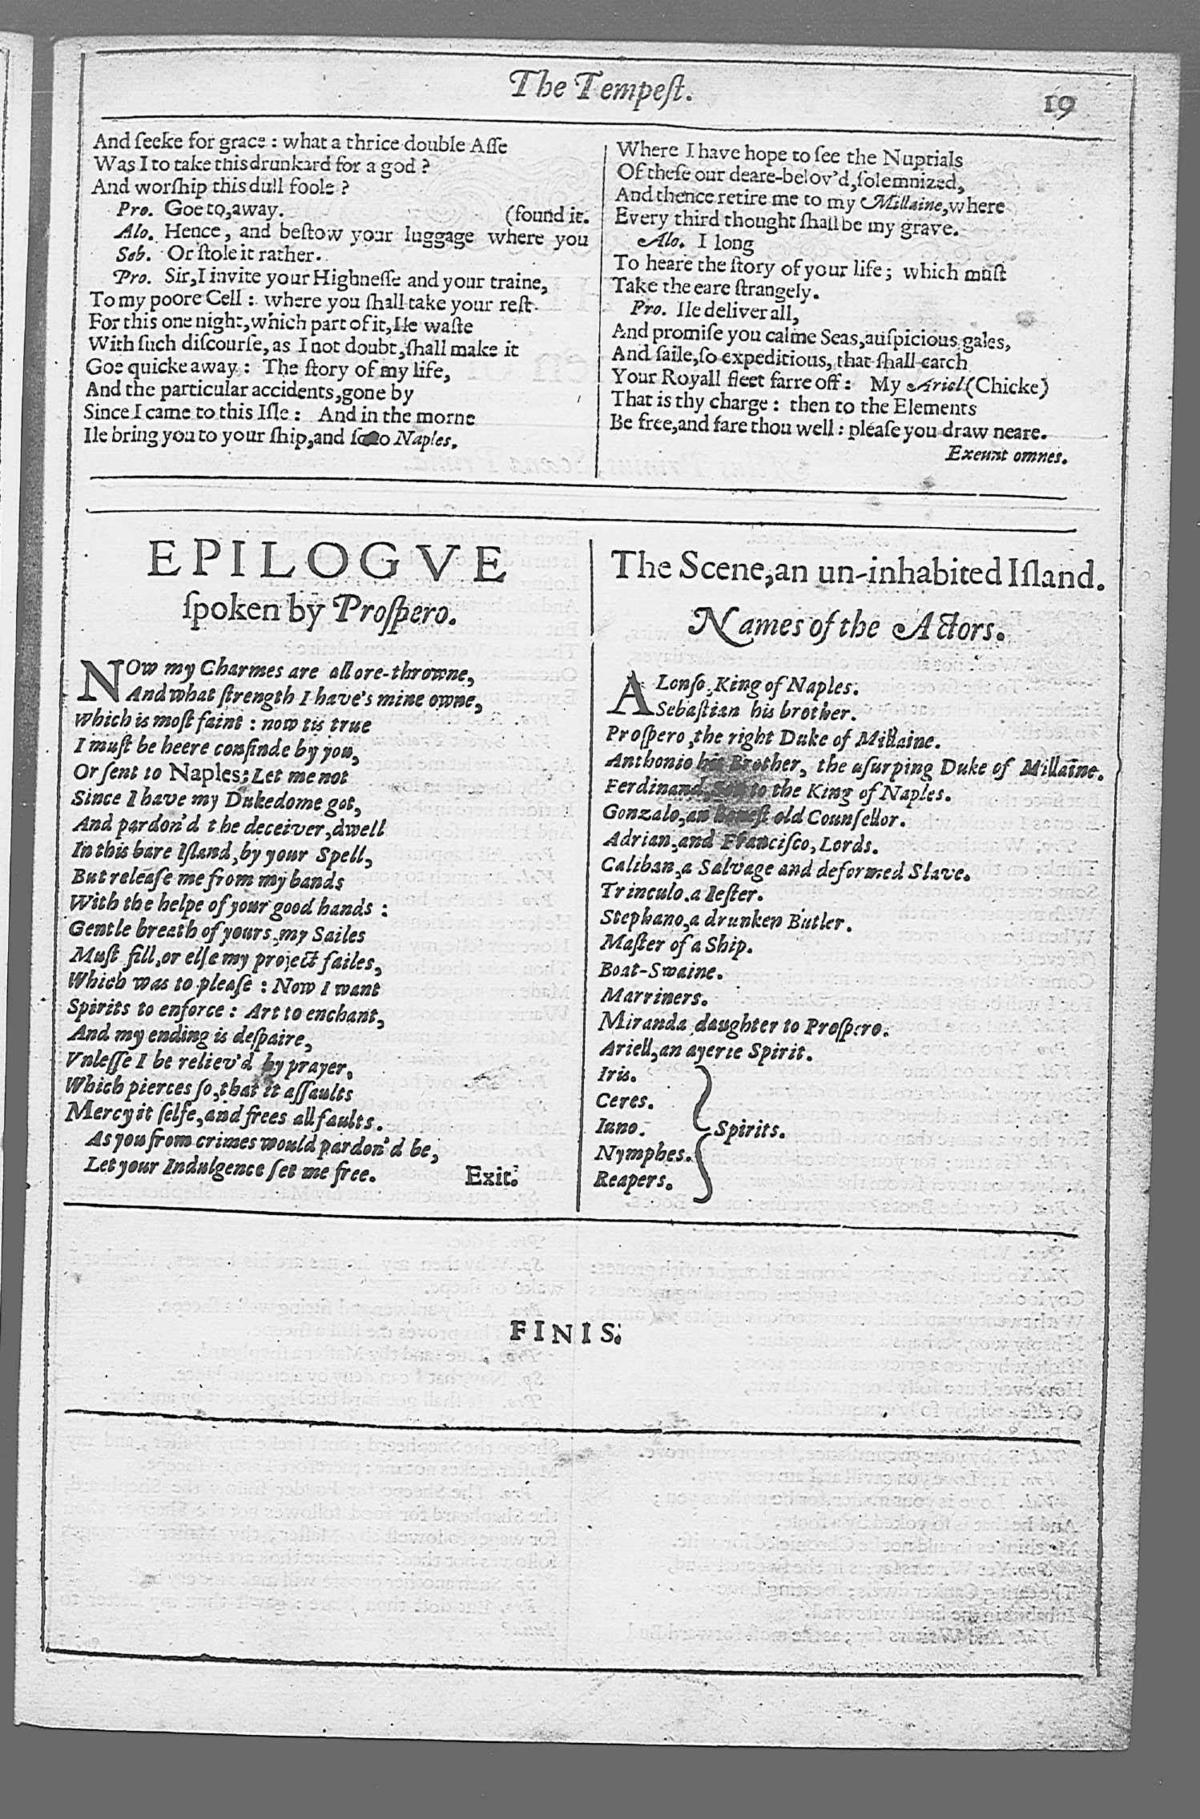 The Tempeſt.
19
And ſeeke for grace: what a thrice double Aſſe
Was I to take this drunkard for a god?
And worſhip this dull foole?
Pro. Goe to, away.
(found it.
Alo. Hence, and beſtow your luggage where you
Seb. Or ſtole it rather.
Pro. Sir, I invite your Highneſſe and your traine,
To my poore Cell: where you ſhall take your reſt
For this one night, which part of it, Ile waſte
With ſuch diſcourſe, as I not doubt, ſhall make it
Goe quicke away: The ſtory of my life,
And the particular accidents, gone by
Since I came to this Iſle: And in the morne
Ile bring you to your ſhip, and ſo to Naples.
Where I have hope to ſee the Nuptials
Of theſe our deare-belov'd, ſolemnized,
And thence retire me to my Millaine, where
Every third thought ſhall be my grave.
Alo. I long
To heare the ſtory of your life; which muſt
Take the eare ſtrangely.
Pro. Ile deliver all,
And promiſe you calme Seas, auſpicious gales,
And ſaile, ſo expeditious, that ſhall catch
Your Royall fleet farre off: My Ariel (Chicke)
That is thy charge: then to the Elements
Be free, and fare thou well: pleaſe you draw neare.
Exeunt omnes.
EPILOGVE
ſpoken by Proſpero.
NOw my Charmes are all ore-throwne,
And what ſtrength I have's mine owne,
Which is moſt faint: now tis true
I muſt be heere confinde by you,
Or ſent to Naples; Let me not
Since I have my Dukedome got,
And pardon'd the deceiver, dwell
In this bare Iſland, by your Spell,
But releaſe me from my bands
With the helpe of your good hands:
Gentle breath of yours, my Sailes
Muſt fill, or elſe my project failes,
Which was to pleaſe: Now I want
Spirits to enforce: Art to enchant,
And my ending is deſpaire,
Vnleſſe I be reliev'd by prayer,
Which pierces ſo, that it aſſaults
Mercy it ſelfe, and frees all faults.
As you from crimes would pardon'd be,
Let your Indulgence ſet me free.
Exit.
The Scene, an un-inhabited Iſland.
Names of the Actors.
ALonſo, King of Naples.
Sebaſtian his brother.
Proſpero, the right Duke of Millaine.
Anthonio his Brother, the uſurping Duke of Millaine.
Ferdinand, Son to the King of Naples.
Gonzalo, an honeſt old Counſellor.
Adrian, and Franciſco, Lords.
Caliban, a Salvage and deformed Slave.
Trinculo. a Ieſter.
Stephano, a drunken Butler.
Maſter of a Ship.
Boat-Swaine.
Marriners.
Miranda, daughter to Proſpero.
Ariell, an ayerie Spirit.
Iris.
Ceres.
Iuno.
Spirits.
Nymphes.
Reapers.
FINIS.